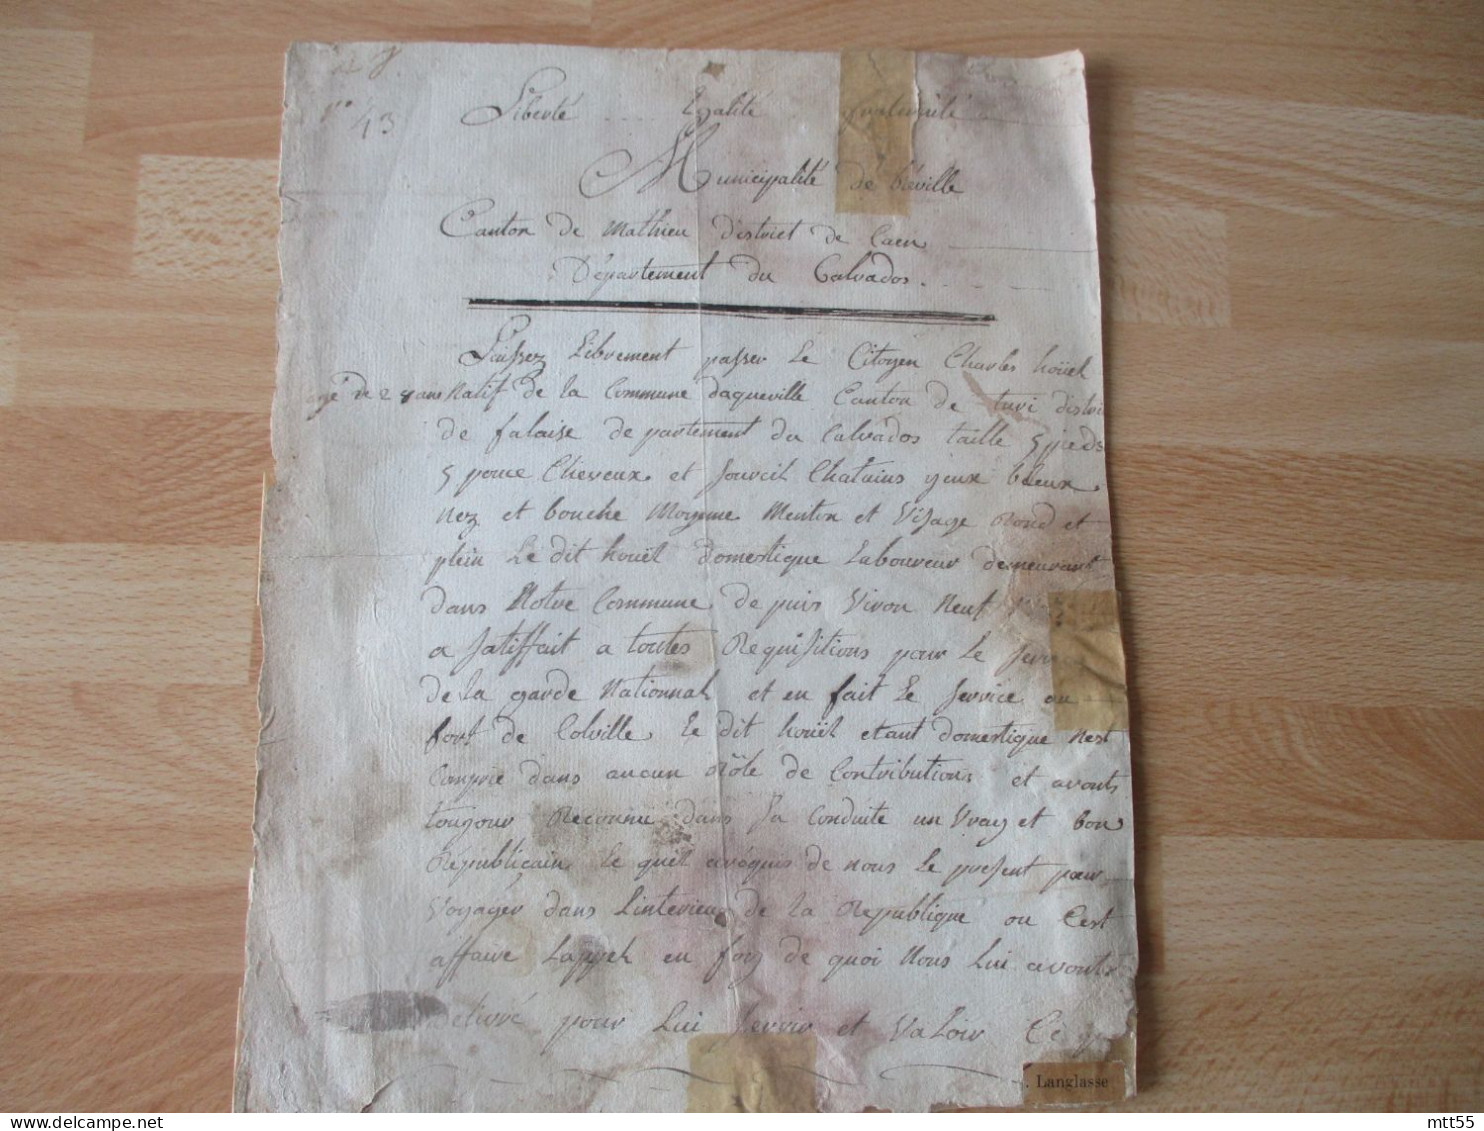 n° 43
Liberté Egalité fraternité
Municipalité de biéville
Canton de Mathieu district de Caen
Département du Calvados
Laissez Librement passer Le Citoyen Charles houël
agé de 28 ans Natif de La Commune daqueville Canton de turi distri
de falaise departement du Calvados taille 5 pieds
5 pouce Cheveux et Sourcil Chatains yeux bleux
Nez et bouche Moyenne Menton et Visage Rond et
plein Le dit houël domestique Laboureur demeurant
dans Notre Commune depuis Viron Neuf
a satiffait a toutes Requisitions pour Le Service
de La garde Nationnal et en fait Le Service au
fort de Colville Le dit houël etant domestique Nest
Compris dans aucun Rôle de Contributions et avons
toujour Reconnu dans Sa Conduite un Vray et bon
Républicain Le quel a réquis de nous Le present pour
Voyager dans Linterieur de La République ou Cest
affaire Lappel en foy de quoi Nous Lui avons
délivré pour Lui Servir et Valoir Ce
. Langlasse
mtt55